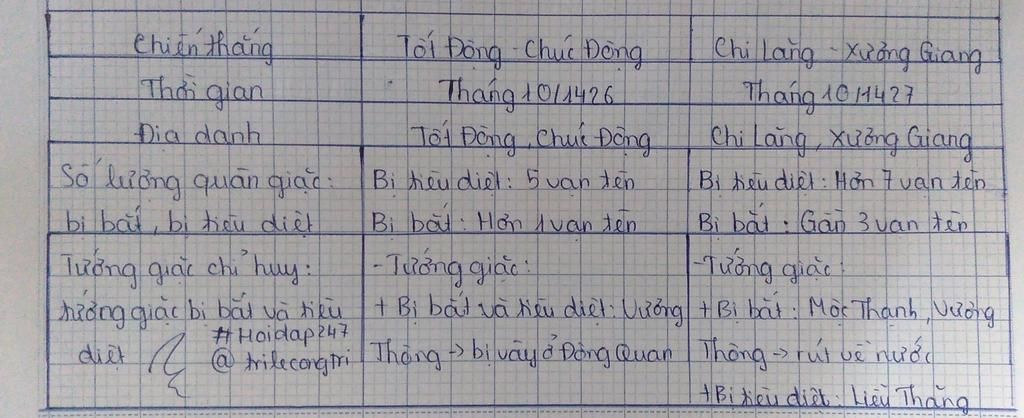 Chiến thắng
Tốt Động - Chúc Động
Chi Lăng - Xương Giang
Thời gian
Tháng 10/1426
Tháng 10/1427
Địa danh
Tốt Động, Chúc Động
Chi Lăng, Xương Giang
Số lượng quân giặc:
bị bắt, bị tiêu diệt
Bị tiêu diệt: 5 vạn tên
Bị bắt: Hơn 1 vạn tên
Bị tiêu diệt: Hơn 7 vạn tên
Bị bắt: Gần 3 vạn tên
Tướng giặc chỉ huy:
tướng giặc bị bắt và tiêu
diệt
#Hoidap247
@trilecongtri
- Tướng giặc:
+ Bị bắt và tiêu diệt: Vương
Thông -> bị vây ở Đông Quan
- Tướng giặc:
+ Bị bắt: Mộc Thạnh, Vương
Thông -> rút về nước
+ Bị tiêu diệt: Liễu Thăng